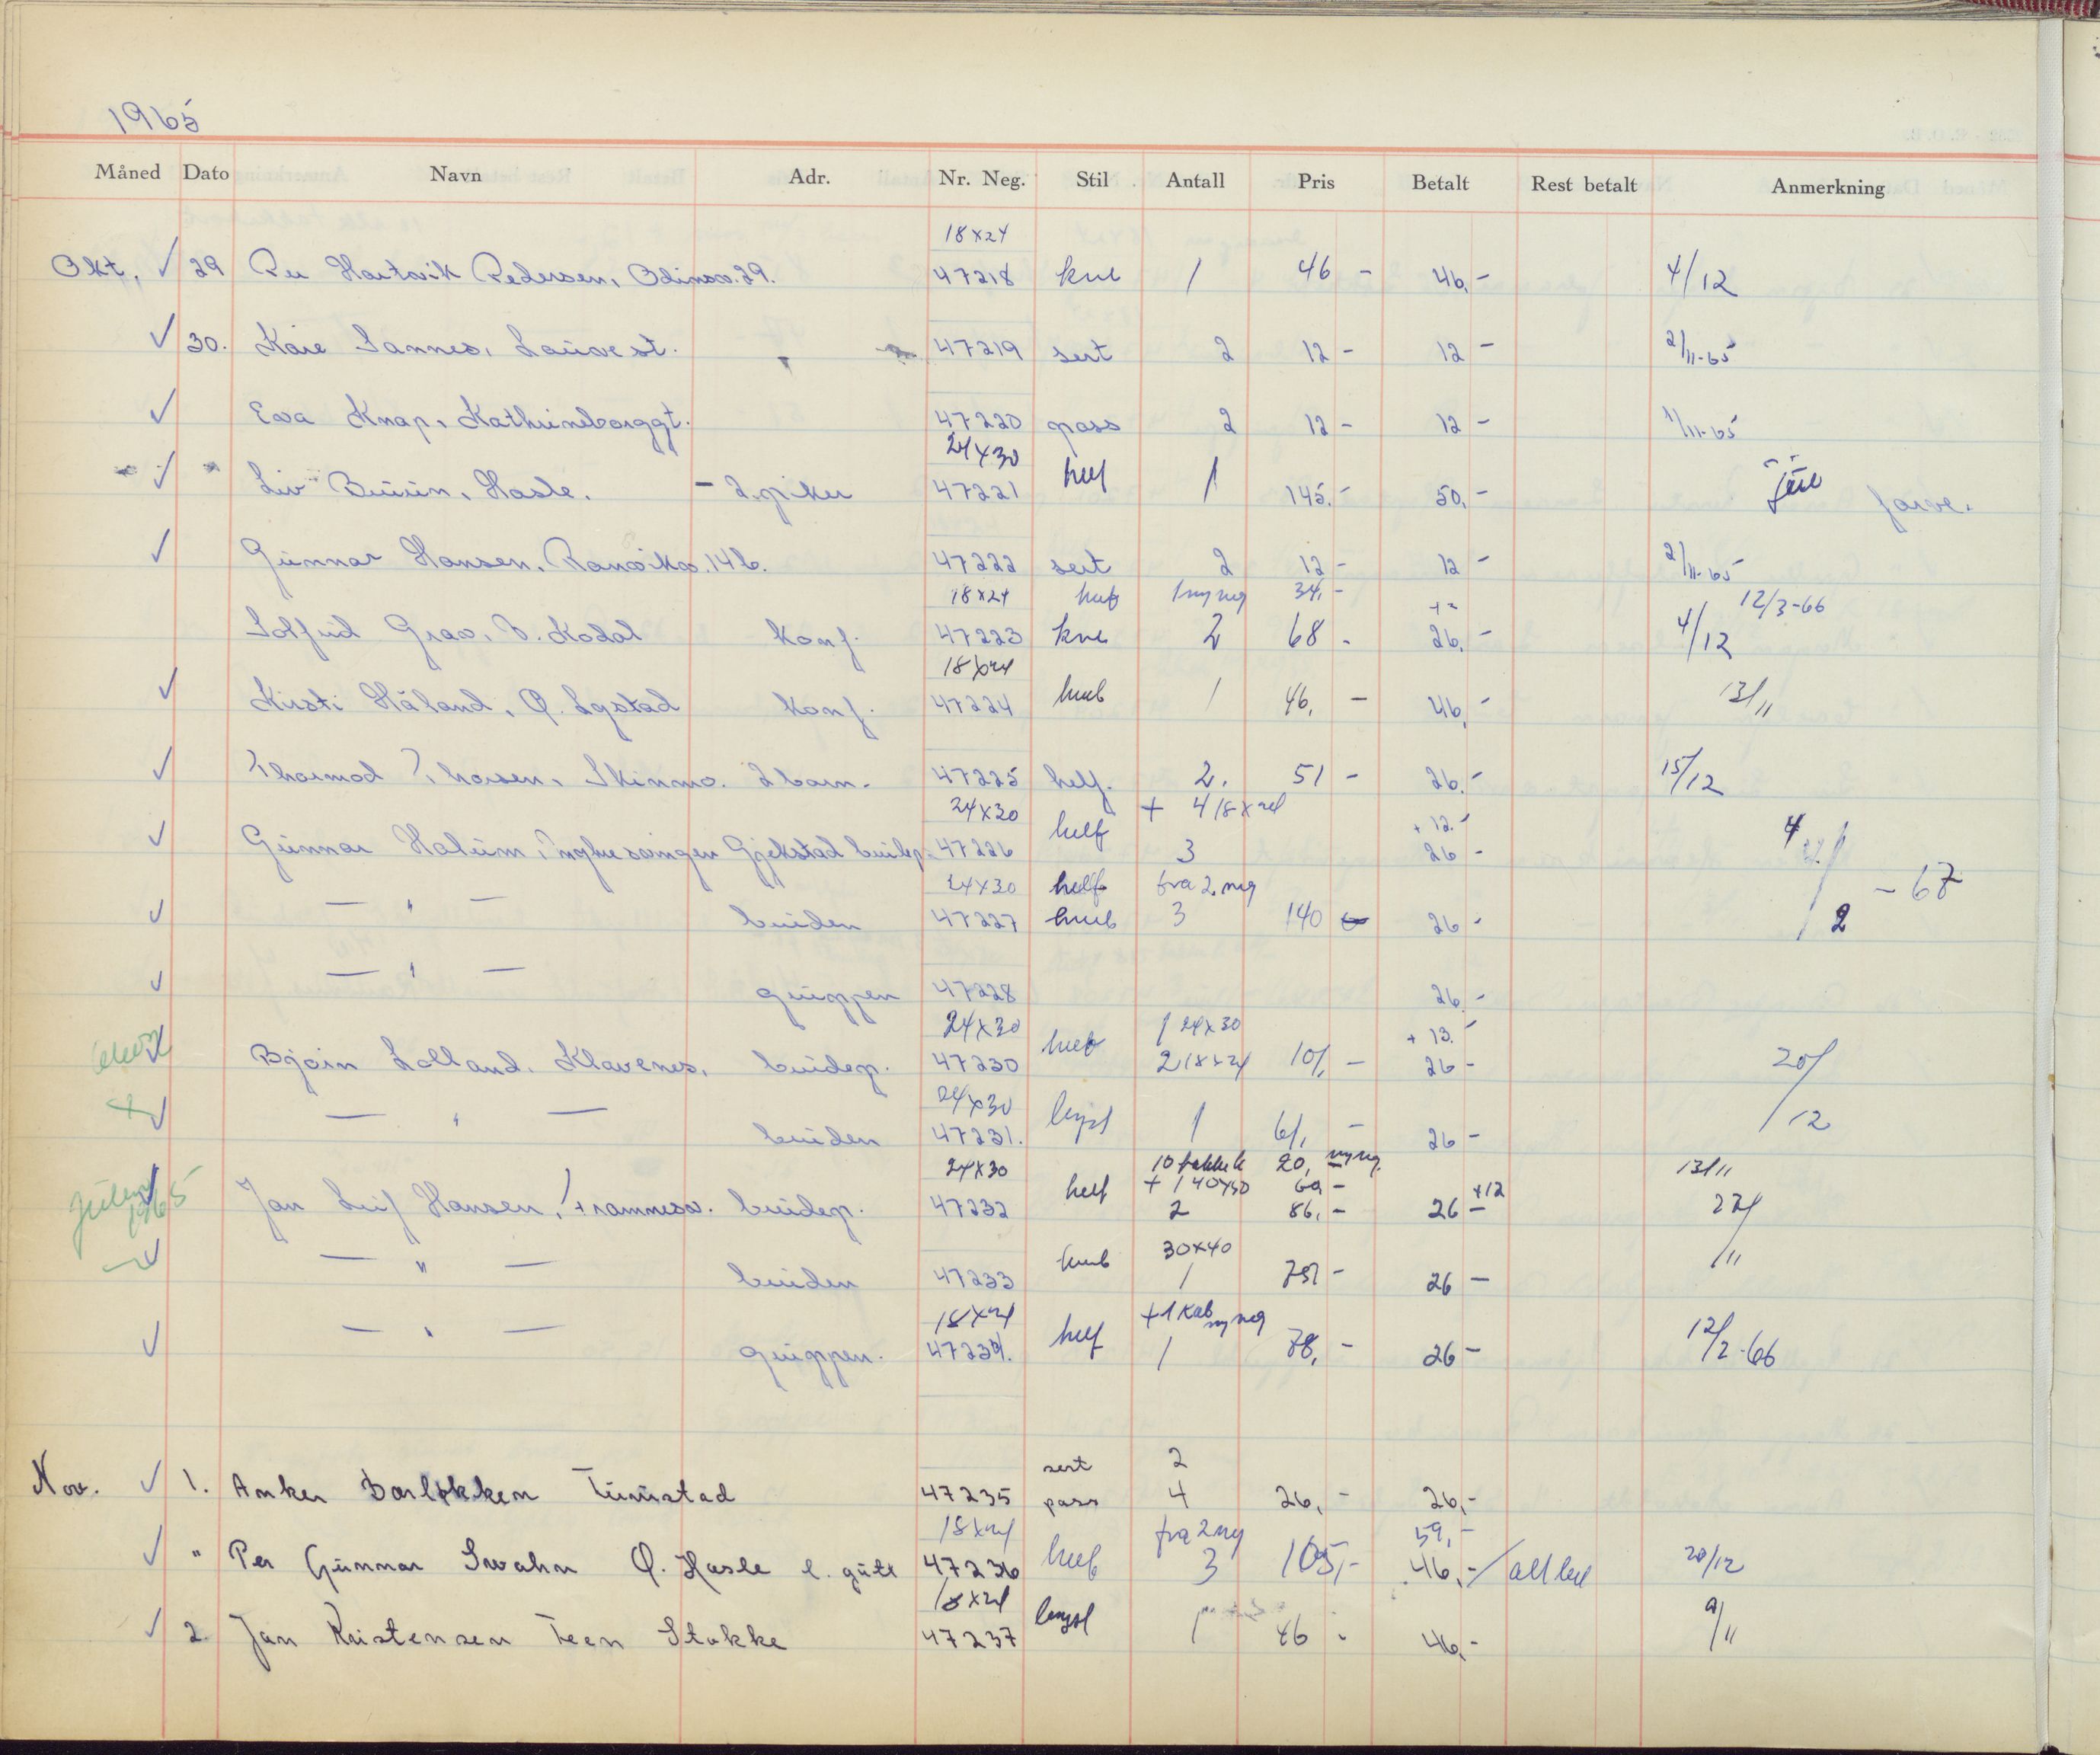 1965
Måned Dato Navn Adr. Nr. Neg. Stil Antall Pris Betalt Rest betalt Anmerkning
18x24
Okt, ✓ 29 Per Hartvik Pedersen, Odinsv. 29. 47218 kne 1 46 - 46,- 4/12
✓ 30. Kåre Sannes, Lauvest. 47219 sert 2 12 - 12 - 2/11-65
✓ Eva Knap, Kathrineborggt. 47220 pass 2 12 - 12 - 1/11-65
24x30
✓ Liv Buùin, Hasle. - 2 piker 47221 helf 1 145.- 50,- farve.
✓ Gunnar Hansen, Ranvikv. 14b. 47222 sert 2 12 - 12 - 2/11-65
18x24 1 ny neg 34,- 12/3-66
Solfrid Grav, B. Kodal Konf. 47223 kne 2 68 - 26,- 4/12
18x24
✓ Kirsti Håland, Ø. Lystad Konf. 47224 1 46, - 46,- 13/11
✓ Thormod Thorsen, Skinmo. 2 barn. 47225 helf. 2. 51 - 26.- 15/12
24x30 + 4 18x24 + 12.-
✓ Gunnar Halum, Gjekstad brudep. 47226 helf 3 26 - 4
24x30 helf fra 2 neg - 67
✓ — " — bruden 47227 3 140 26 - 2
✓ — " — gruppen 47228 26,-
24x30 1 24x30 + 13.-
✓ Bjørn Lolland, Klavenes, brudep. 47230 2 18x24 101, - 26 - 20/12
24x30
✓ — " — bruden 47231. 1 61, - 26 -
24x30 20, ny neg. 13/11
+ 1 40x50 60 -
✓ Jan Leif Hansen, Framnesv. brudep. 47232 helf 2 86,- 26 - +12 27/11
30x40
✓ — " — bruden 47233 1 26 -
18x24 + 1 Kab ny neg
✓ — " — gruppen. 47234. helf 1 78, - 26 - 12/2-66
sert 2
Nov. ✓ 1. Anker Barlokken Tuùnstad 47235 pass 4 26,- 26,-
18x24 fra 2 neg 59,-
✓ " Per Gunnar Swahn Ø. Hasle l. gutt 47236 3 105,- 46,- / alt bet 20/12
18x24
✓ 2 Jan Kristensen Teen Stokke 47237 1 46 - 46,- 9/11